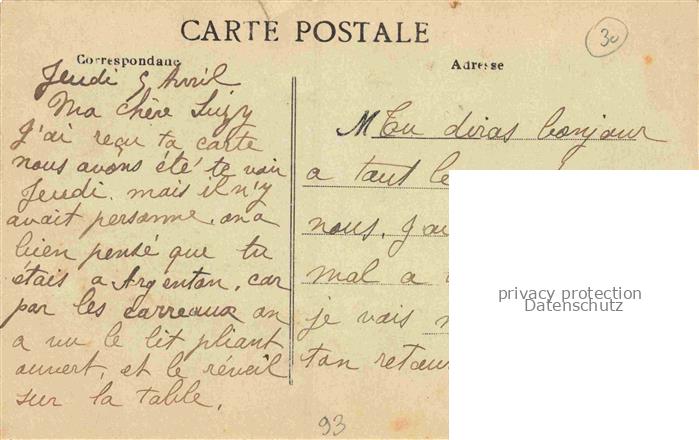 CARTE POSTALE
30
Correspondance
Adresse
Jeudi 5 Avril
Ma chère Suzy
J'ai reçu ta carte
nous avons été te voir
Jeudi. mais il n'y
avait personne, on a
bien pensé que tu
étais a Argenton, car
par les carreaux on
a vu le lit pliant
ouvert, et le réveil
sur la table.
Tu diras bonjour
a tout le
nous, j'ai
mal a
je vais
ton retour
privacy protection
Datenschutz
93